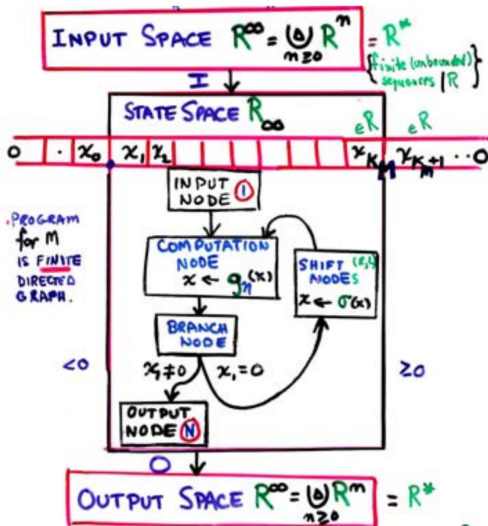 INPUT SPACE R^∞ = ⨃ R^n = R*
n≥0
{finite (unbounded)
sequences / R}
I
STATE SPACE R_∞
∈R ∈R
0 · x₀ x₁ x₂ x_{K_M} x_{K_M+1} ·· 0
INPUT
NODE 1
PROGRAM
for M
IS FINITE
DIRECTED
GRAPH.
COMPUTATION
NODE
x ← g_η(x)
SHIFT
NODES
x ← σ(x)
BRANCH
NODE
<0
x₁≠0 x₁=0
≥0
OUTPUT
NODE N
O
OUTPUT SPACE R^∞ = ⨃ R^n = R*
n≥0